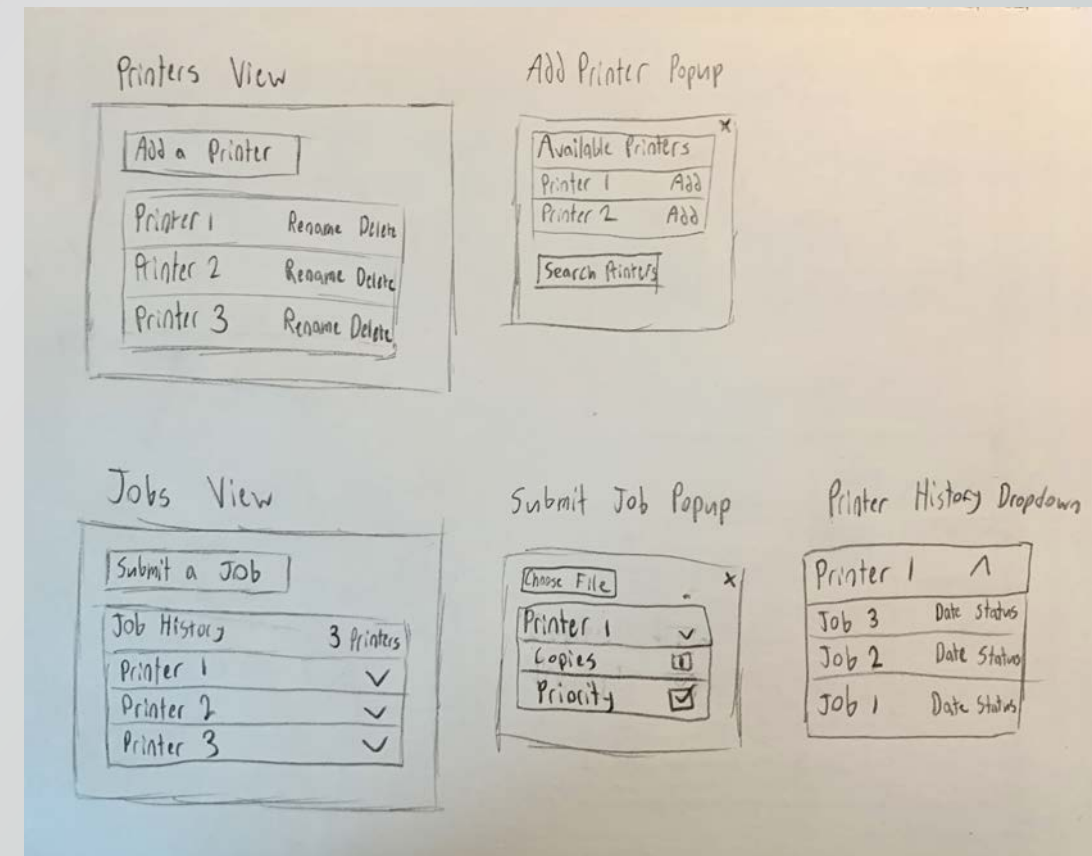 Printers View
Add a Printer
Printer 1 Rename Delete
Printer 2 Rename Delete
Printer 3 Rename Delete
Add Printer Popup
x
Available Printers
Printer 1 Add
Printer 2 Add
Search Printers
Jobs View
Submit a Job
Job History 3 Printers
Printer 1
Printer 2
Printer 3
Submit Job Popup
x
Choose File
Printer 1
Copies 1
Priority
Printer History Dropdown
Printer 1
Job 3 Date Status
Job 2 Date Status
Job 1 Date Status